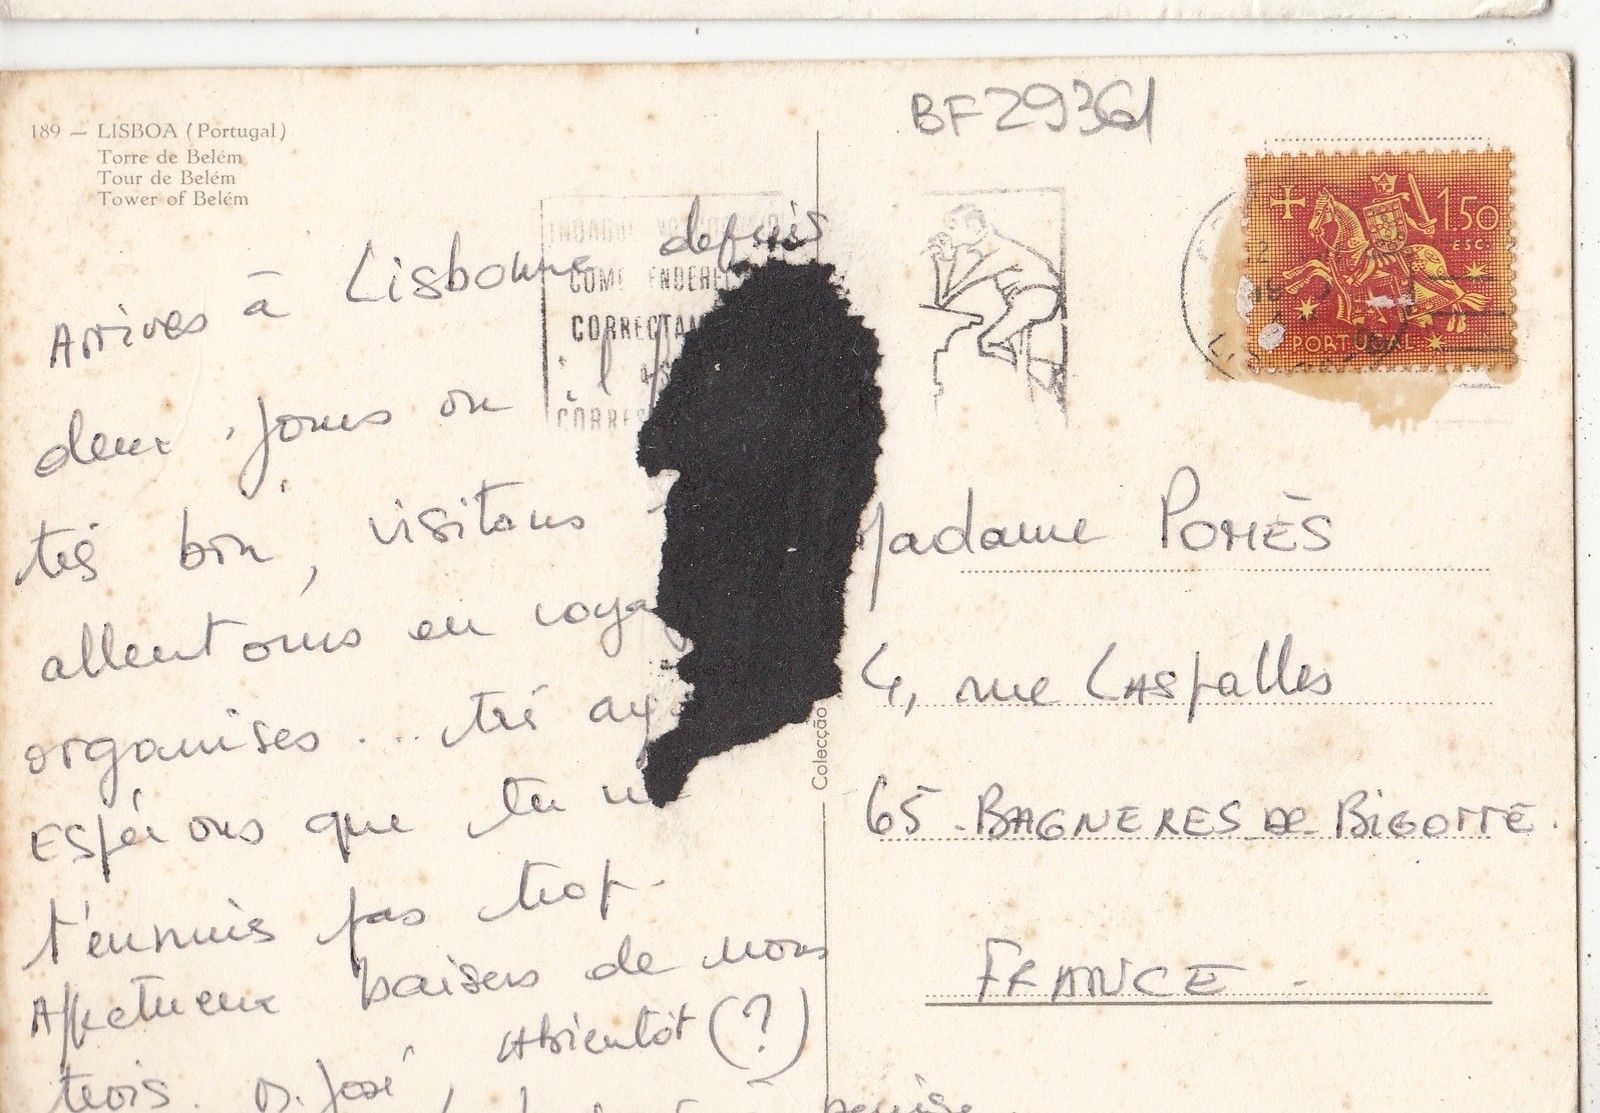 BF29361
189 — LISBOA (Portugal)
Torre de Belém
Tour de Belém
Tower of Belém
COM ENDERE
CORRECTAM
CORRE
1$50
ESC.
PORTUGAL
Arrivés à Lisbonne depuis
deux jours on
très bon, visitons
allentours en voya
organisés... très ag
Espérons que tu n
t'ennuis pas trop.
Affectueux baisers de nous
trois. M. José, Abientôt (?)
Madame POMÈS
4, rue Laspalles
65 - BAGNERES de BIGORRE.
FRANCE -
Colecção